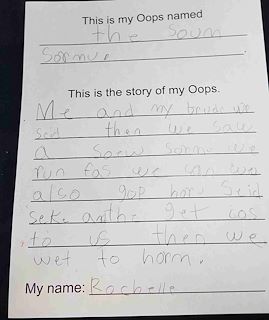 This is my Oops named
the soun
Sormue.
This is the story of my Oops.
Me and my bende we
seid then we saw
a soew sormu we
run fas we can we
also gop horu Seid
sek. anthe get cos
to us then we
wet to horm.
My name: Rochelle